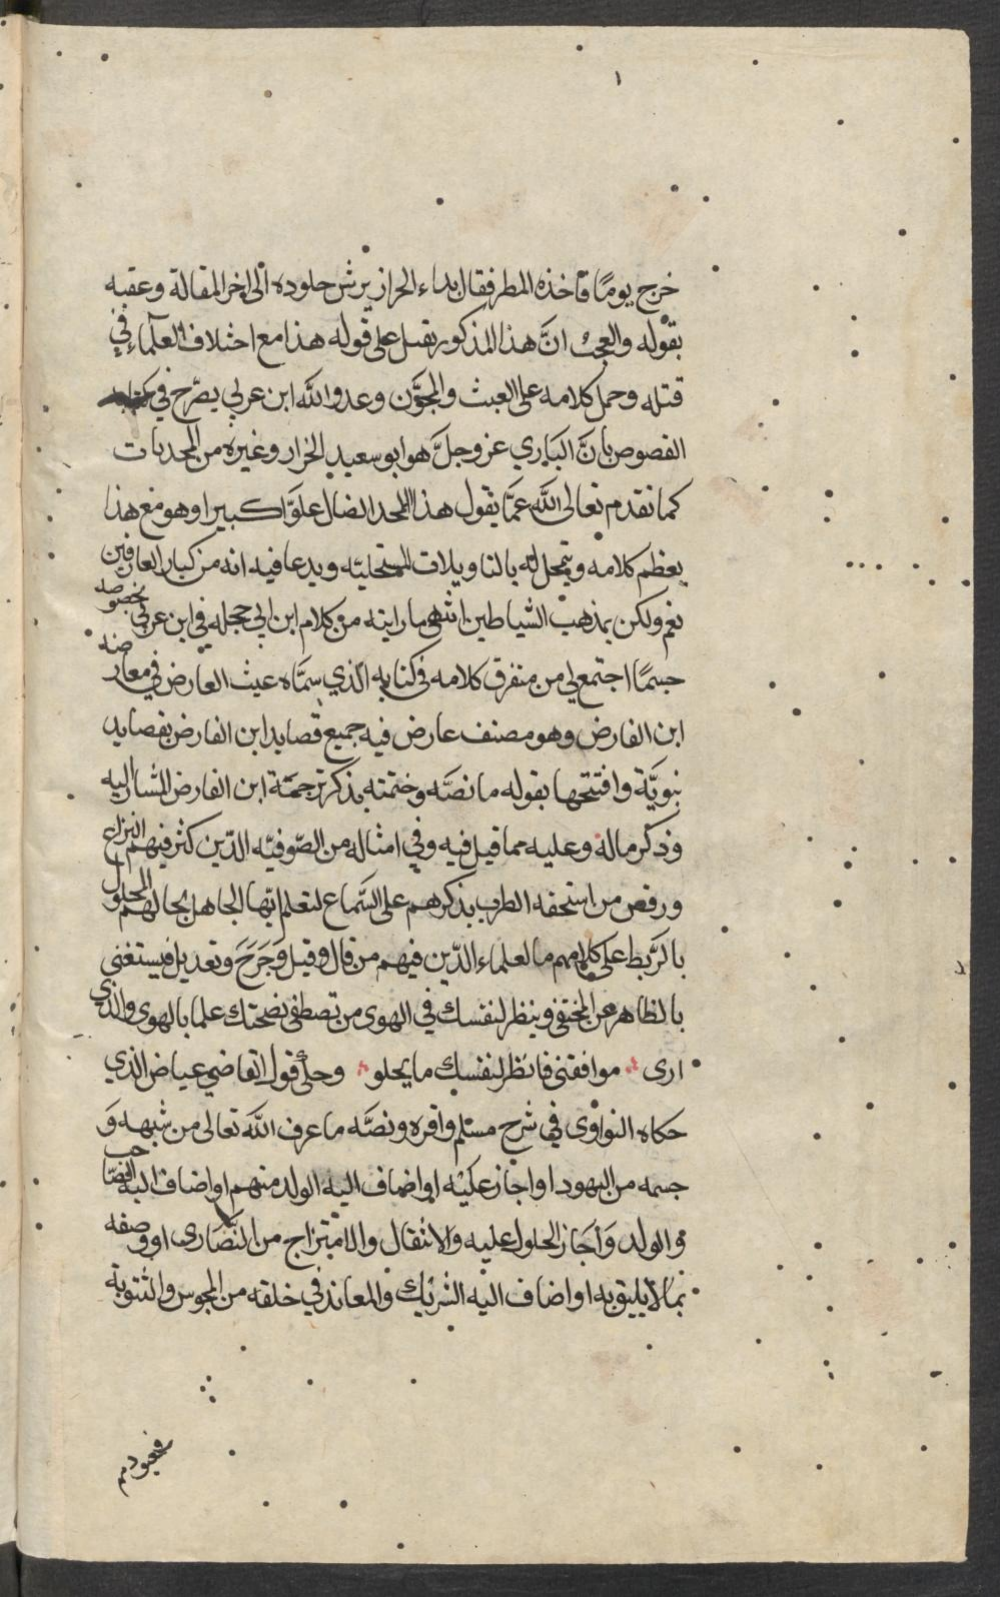 ١
خرج يومًا فاخذه المطر فقال بداء الخراز يرش جلوده الى اخر المقالة وعقبه
بقوله والعجب انَّ هذا المذكور بقتل على قوله هذا مع اختلاف العلماء في
قتله وحمل كلامه على العبث والمجون وعدو الله ابن عربي يصرّح في كتابه
الفصوص بانَّ الباري عز وجلَّ هو ابو سعيد الخراز وغيره من المحدثات
كما تقدم تعالى اللّه عمَّا يقول هذا الملحد الضال علوًّا كبيرا وهو مع هذا
يعظم كلامه ويتمحل له بالتاويلات المستحيلة ويدعا فيه انه من كبار العارفين
نعم ولكن بمذهب الشياطين انتهى ما رايته من كلام ابن ابي حجله في ابن عربي بخصوصه
حسمًا اجتمع لي من متفرق كلامه في كتابه الّذي سمَّاه غيث العارض في معارضه
ابن الفارض وهو مصنف عارض فيه جميع قصايد ابن الفارض بقصايد
نبويَّة وافتتحها بقوله ما نصّه وختمته بذكر ترجمة ابن الفارض المشار اليه
وذكر ماله وعليه مما قيل فيه وفي امثاله من الصّوفيّه الذّين كثر فيهم النزاع
ورقص من استخفه الطرب بذكرهم على السَّماع لتعلم ايها الجاهل بحالهم المحلول
بالرَّبط على كلامهم ما لعلماء الدّين فيهم من قال وقيل وَجَرَحَ وتعديل فيستغنى
بالظاهر عن المختفي وينظر لنفسك في الهوى من تصطفى نصحتك علما بالهوى والذي
ارى موافقتي فانظر لنفسك ما يحلو وحلّى قول القاضي عياض الذي
حكاه النواوى في شرح مسلم واقره ونصَّه ما عرف اللّه تعالى من شبهه وَ
جسمه من اليهود او اجاز عليه او اضاف اليه الولد منهم او اضاف اليه الصّاحب
ه والولد وَاَجَاز الحلول عليه والانتقال والامتزاج من النّصَارى او وصفه
بما لا يليق به او اضاف اليه الشريك والمعاند في خلقه من المجوس والثنوية
فمعبودهم